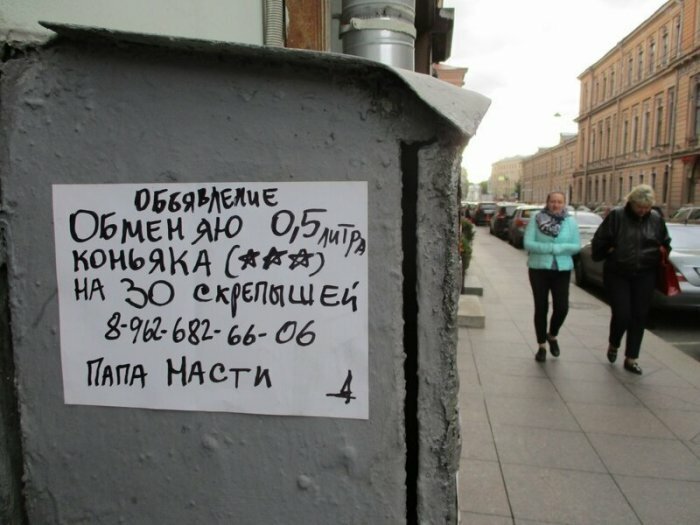 ОБЪЯВЛЕНИЕ
ОБМЕНЯЮ 0,5 ЛИТРА
КОНЬЯКА (★★★)
НА 30 СКРЕПЫШЕЙ
8-962-682-66-06
ПАПА НАСТИ